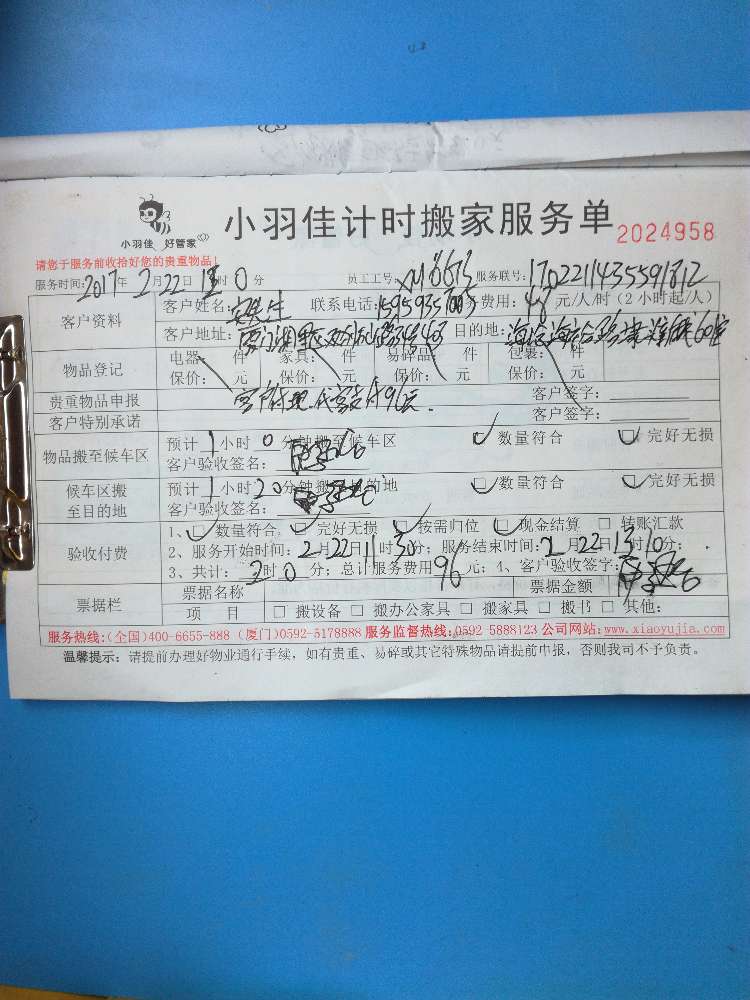 小羽佳 好管家
小羽佳计时搬家服务单 2024958
请您于服务前收拾好您的贵重物品!
服务时间: 2017年2月22日 时0分 员工工号: XM8673 服务联号: 17022211435591812
客户资料 客户姓名: 联系电话: 服务费用: 48元/人/时(2小时起/人)
客户地址: 目的地:
物品登记 电器: 件 家具: 件 易碎品: 件 包裹: 件
保价: 元 保价: 元 保价: 元 保价: 元
贵重物品申报 客户签字:
客户特别承诺 客户签字:
物品搬至候车区 预计1小时0分钟搬至候车区 ☑数量符合 ☑完好无损
客户验收签名:
候车区搬至目的地 预计1小时20分钟搬至目的地 ☑数量符合 ☑完好无损
客户验收签名:
验收付费 1、☑数量符合, ☑完好无损 ☑按需归位 ☑现金结算 □转账汇款
2、服务开始时间: 2月22日11时30分; 服务结束时间: 2月22日13时10分;
3、共计: 2时0分; 总计服务费用96元; 4、客户验收签字:
票据栏 票据名称 票据金额
项 目 □搬设备 □搬办公家具 □搬家具 □搬书 □其他:
服务热线:(全国)400-6655-888 (厦门)0592-5178888 服务监督热线:0592 5888123 公司网站:www.xiaoyujia.com
温馨提示: 请提前办理好物业通行手续, 如有贵重、易碎或其它特殊物品请提前申报, 否则我司不予负责。